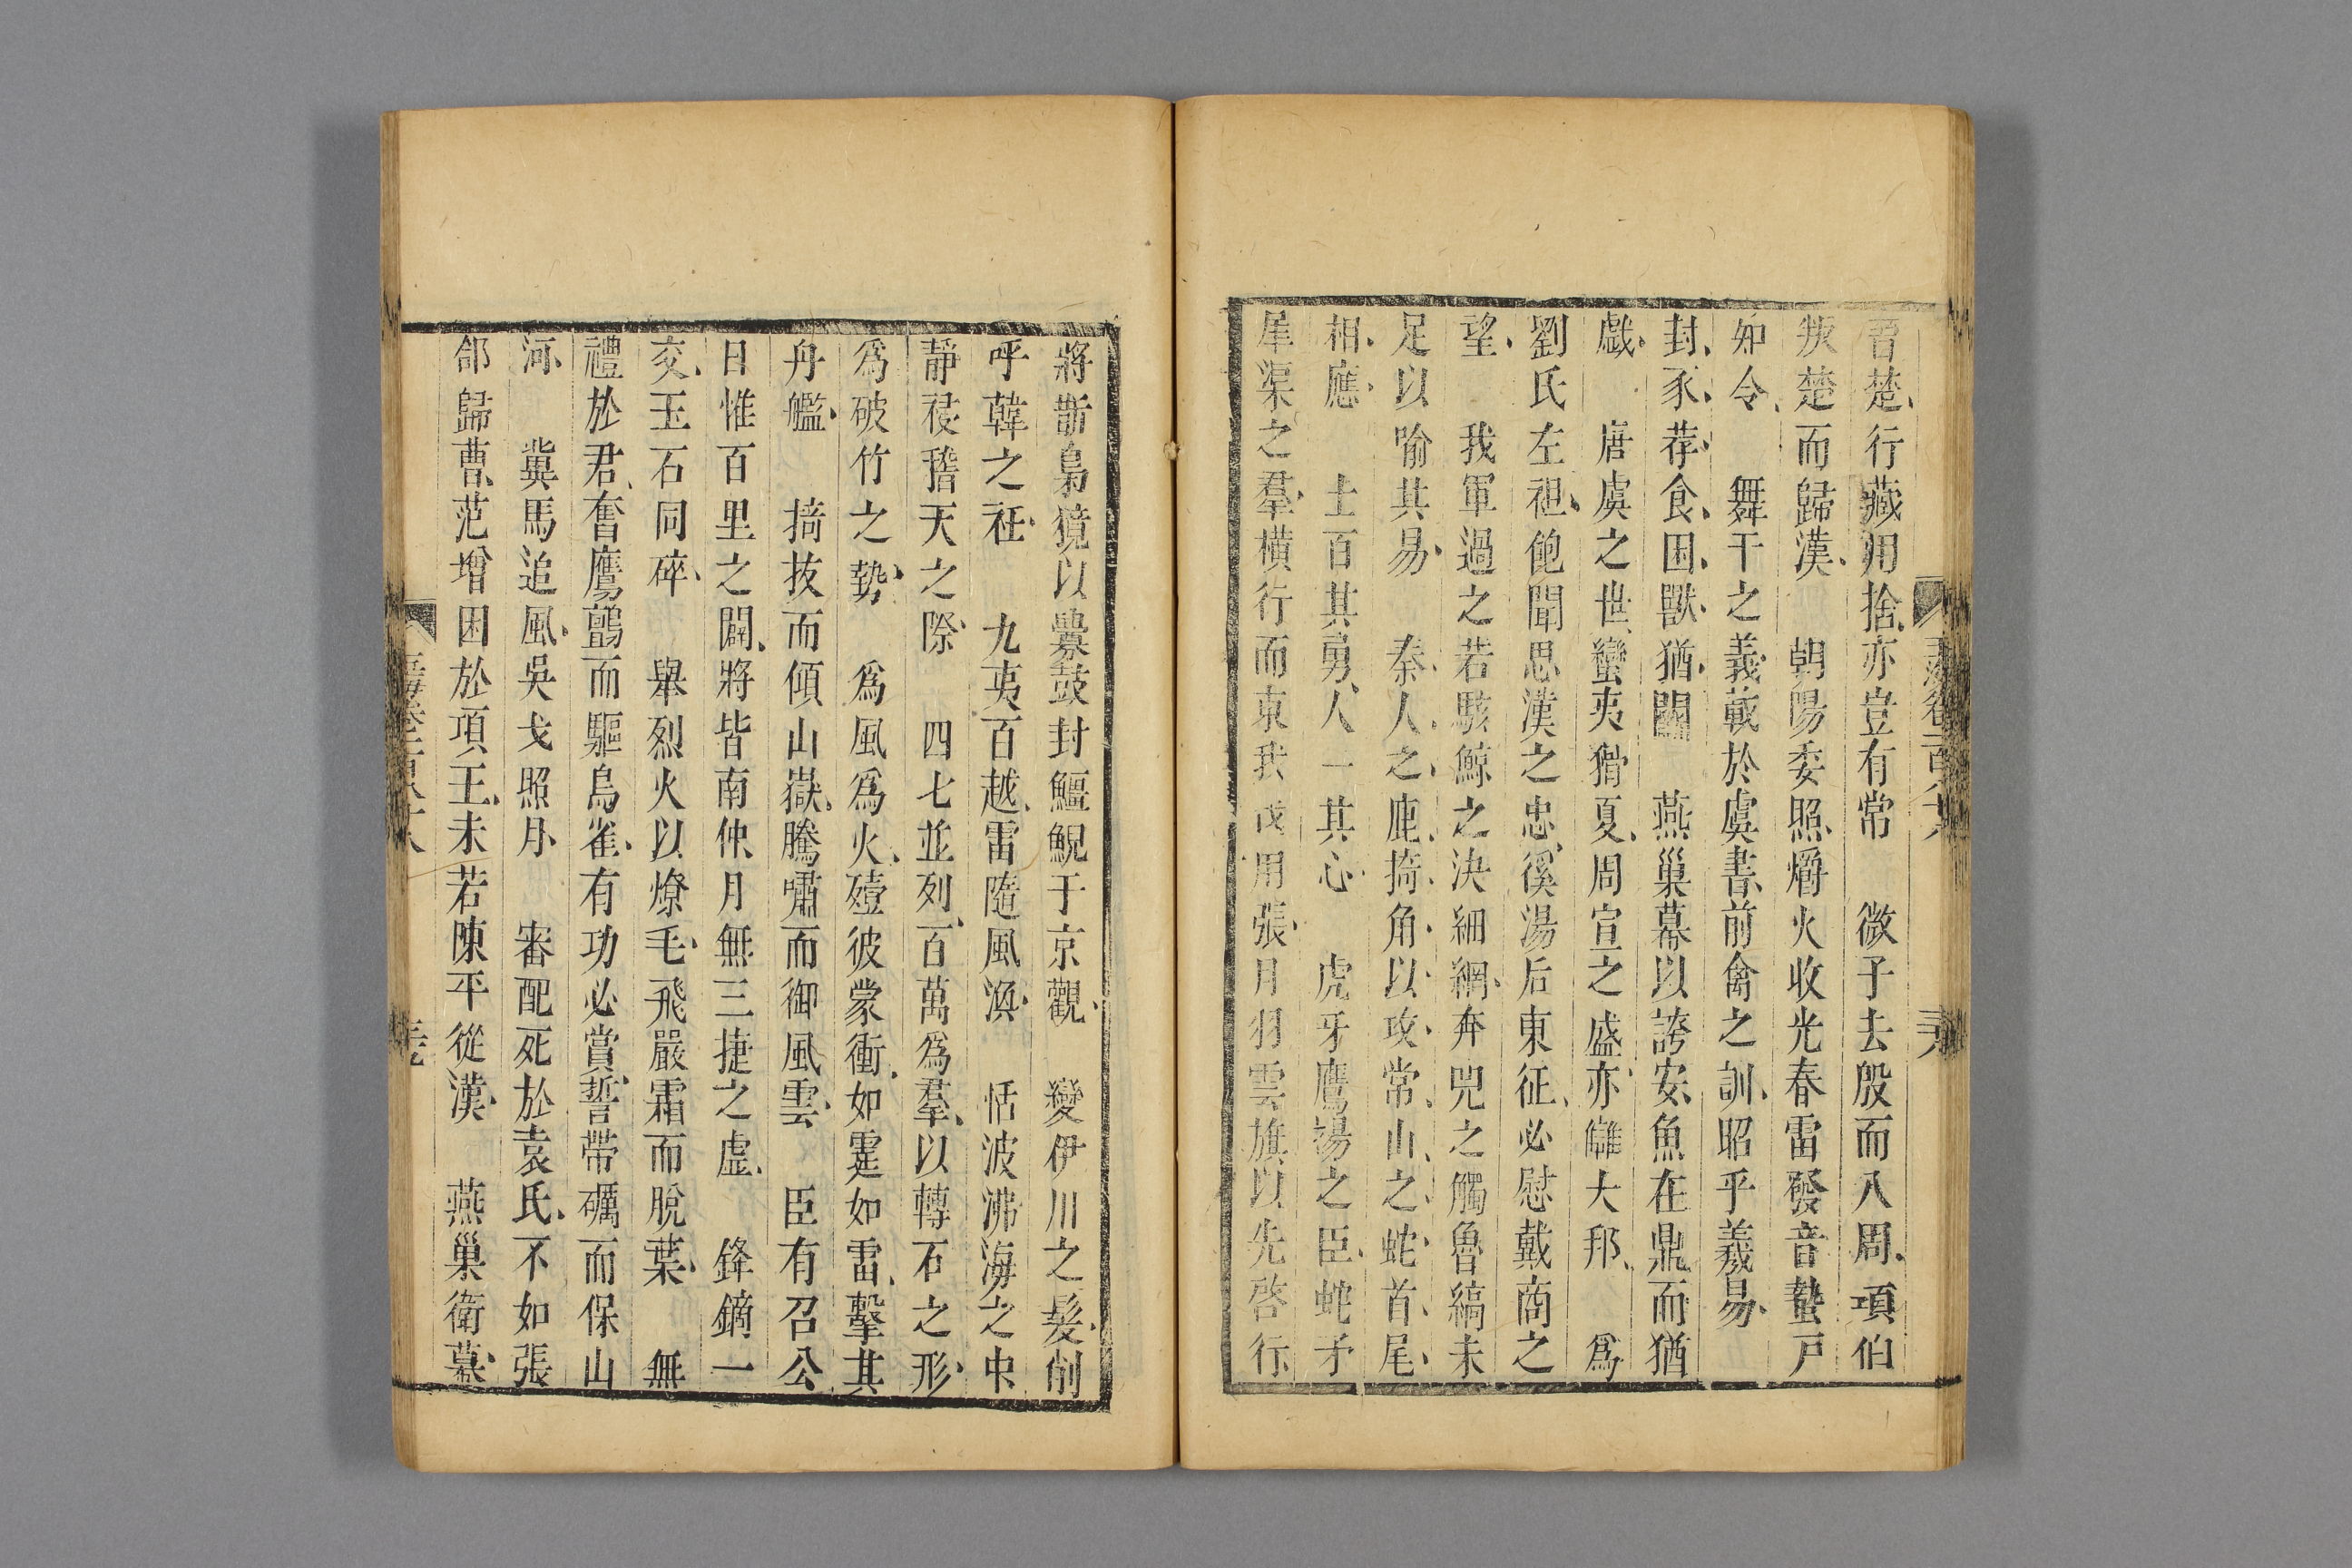 晉楚行藏用捨亦豈有常 微子去殷而入周項伯
叛楚而歸漢 朝陽委照爝火收光春雷發音蟄戸
如令 舞干之義載於虞書前禽之訓昭乎羲易
封豕荐食困獸猶鬬 燕巢幕以誇安魚在鼎而猶
戲 唐虞之世蠻夷猾夏周宣之盛亦讎大邦 爲
劉氏左袒飽聞思漢之忠徯湯后東征必慰戴商之
望 我軍過之若駭鯨之決細網奔兕之觸魯縞未
足以喻其易 秦人之鹿掎角以攻常山之蛇首尾
相應 士百其勇人一其心 虎牙鷹揚之臣蛇矛
犀渠之羣橫行而東我戊用張月羽雲旗以先啓行
將斮梟獍以釁鼓封鱷鯢于京觀 變伊川之髮削
呼韓之衽 九夷百越雷隨風渙 恬波沸海之中
靜祲稽天之際 四七並列百萬爲羣以轉石之形
爲破竹之勢 爲風爲火殪彼蒙衝如霆如雷擊其
舟艦 掎拔而傾山嶽騰嘯而御風雲 臣有召公
日惟百里之闢將皆南仲月無三捷之虛 鋒鏑一
交玉石同碎 舉烈火以燎毛飛嚴霜而脫葉 無
禮於君奮鷹鸇而驅鳥雀有功必賞誓帶礪而保山
河 冀馬追風吳戈照月 審配死於袁氏不如張
郃歸曹范增困於項王未若陳平從漢 燕巢衛幕